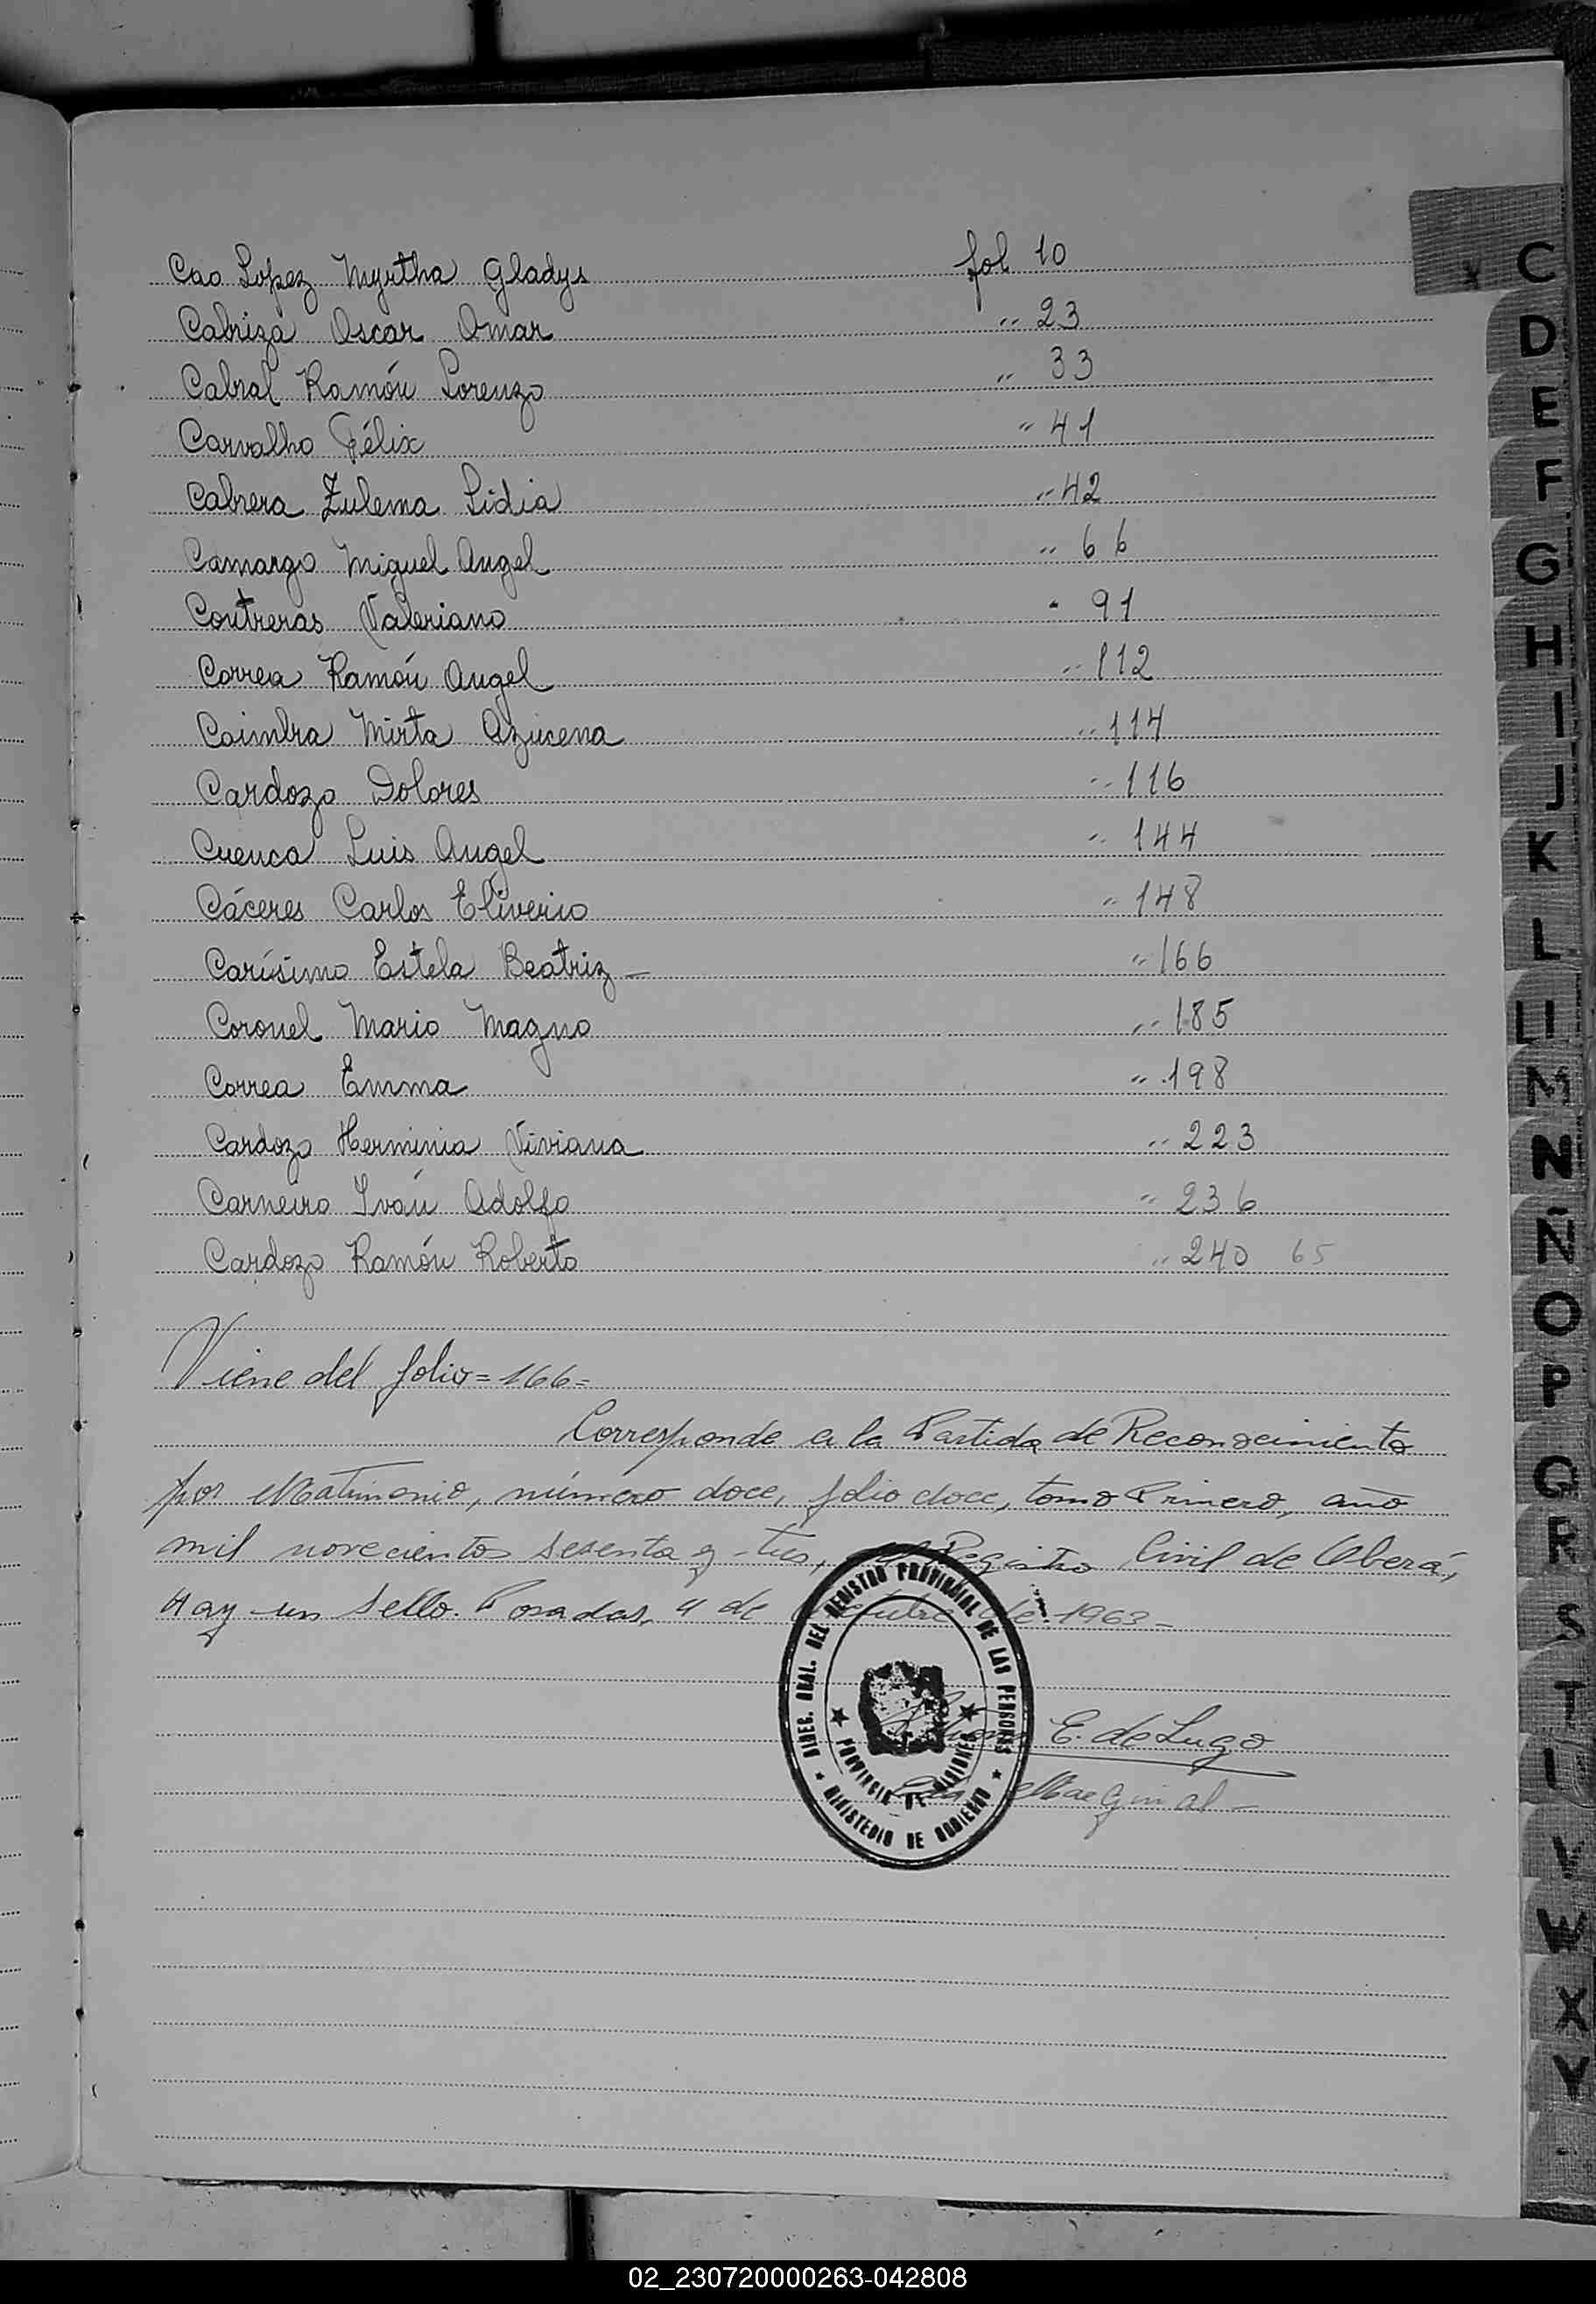 Cao Lopez Myrtha Gladys fol 10
Cabriza Oscar Omar " 23
Cabral Ramón Lorenzo " 33
Carvalho Félix " 41
Cabrera Zulema Lidia " 42
Camargo Miguel Angel " 66
Contreras Valeriano " 91
Correa Ramón Angel " 112
Coimbra Mirta Azucena " 114
Cardozo Dolores " 116
Cuenca Luis Angel " 144
Cáceres Carlos Eliverio " 148
Carísimo Estela Beatriz - " 166
Coronel Mario Magno " 185
Correa Emma " 198
Cardozo Herminia Viviana " 223
Carneiro Iván Adolfo " 236
Cardozo Ramón Roberto " 240 65
Viene del folio = 166 =
Corresponde a la Partida de Reconocimiento
por Matrimonio, número doce, folio doce, tomo Primero, año
mil novecientos sesenta y tres, del Registro Civil de Oberá,
Hay un sello. Posadas, 4 de Octubre de 1963 -
E. de Lugo
Marginal -
DIREC. GRAL. DEL REGISTRO PROVINCIAL DE LAS PERSONAS
PROVINCIA DE MISIONES
MINISTERIO DE GOBIERNO
C
D
E
F
G
H
I
J
K
L
LL
M
N
Ñ
O
P
Q
R
S
T
V
W
X
Y
02_230720000263-042808